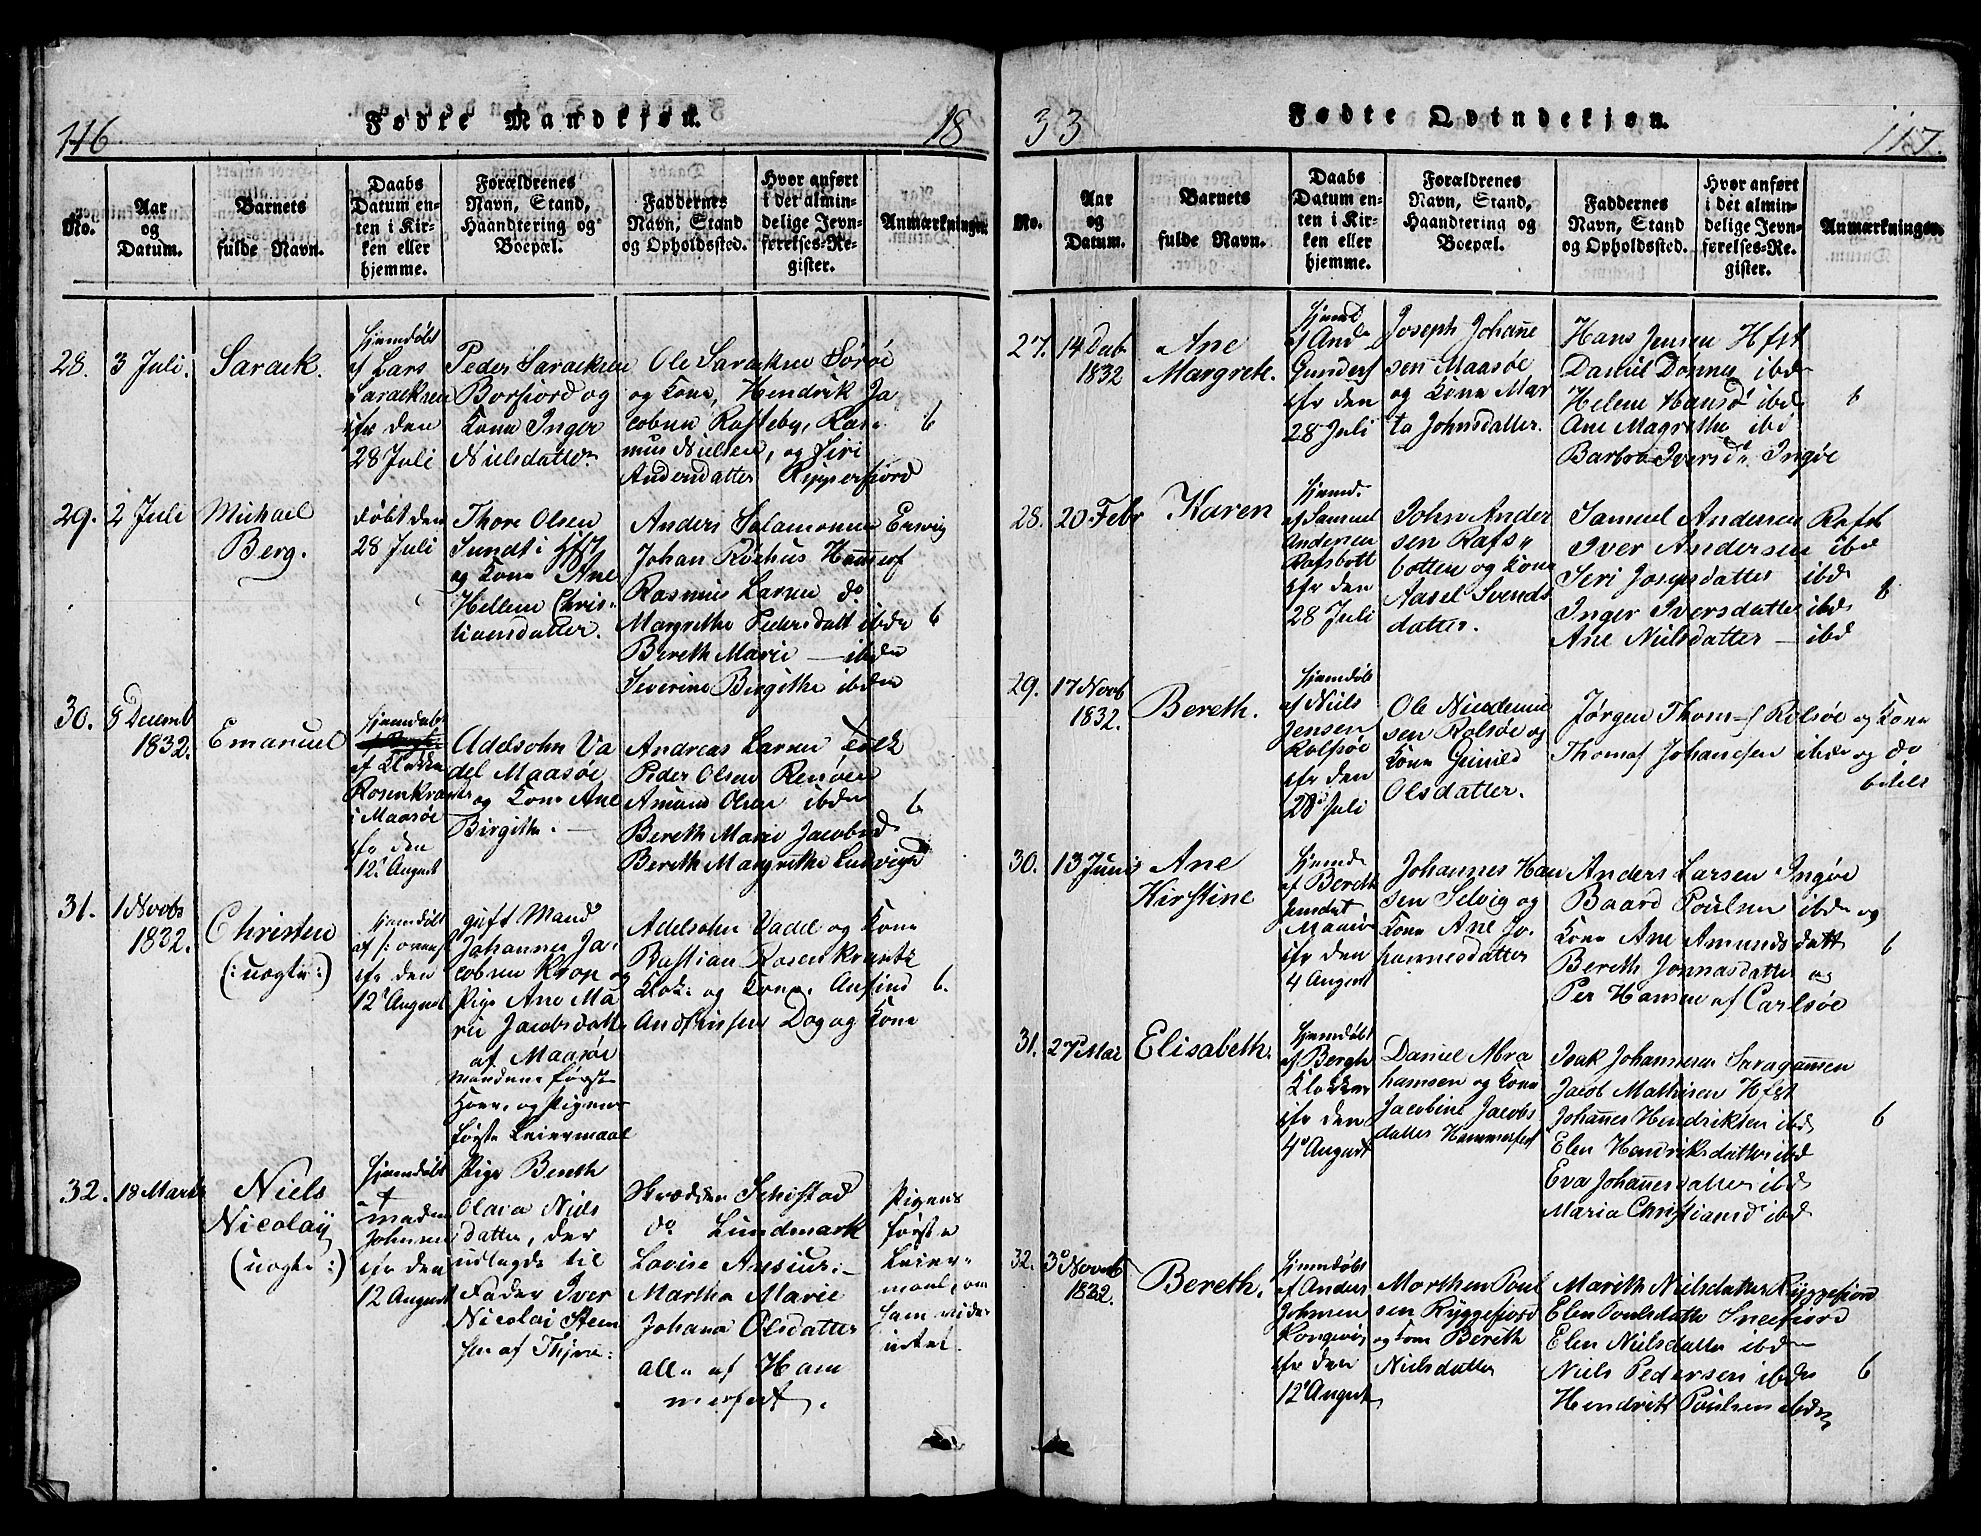 116
Fødte Mandkjøn.
18
No.
Aar
og
Datum.
Barnets
fulde Navn.
Daabs
Datum en-
ten i Kir-
ken eller
hjemme.
Forældrenes
Navn, Stand,
Haandtering og
Boepæl.
Faddernes
Navn, Stand
og Opholdssted.
Hvor anført
i det almin-
delige Jevn-
førelses-Re-
gister.
Anmærkninger.
28.
3 Juli.
Sarack.
hjemdøbt
af Lars
Saracksen
ifr den
28 Juli
Peder Saracksen
Borfiord og
Kone Inger
Nielsdatter
Ole Saracksen Sørøe
og Kone, Hendrik Ja
cobsen Rasteby, Ras-
mus Nielsen, og Siri
Andersdatter Ripperfiord
6
29.
2 Juli
Michael
Berg.
døbt den
28 Juli
Thore Olsen
Sundt i Hfst
og Kone Ane
Hellene Chris-
tiansdatter.
Anders Salamonsen Erwig
Johan Rochus Hammerf
Rasmus Larsen do
Margrethe Pedersdatt ibdn
Bereth Marie — ibdn
Severine Birgithe ibdn
6
30.
8 Decemb
1832.
Emanuel
hjemdøbt
af Klokker
Rosenkrantz
i Maasøe
ifr den
12 August
Adelsohn Va
del Maasøe
og Kone Ane
Birgithe. —
Andreas Larsen
Peder Olsen Renøen
Amund Olsen ibdn
Bereth Marie Jacobsd
Bereth Margrethe Ludvigsd
6
31.
1 Novbs
1832.
Christen
(: uegte :)
hjemdøbt
af
ifr den
12 August
gift Mand
Johannes Ja-
cobsen Krop og
Pige Ane Ma
rie Jacobsdatt
af Maasøe
Mandens første
Hoer, og Pigens
første Leiermaal
Adelsohn Vadel og Kone
Bastian Rosenkrantz
Klok. og Kone. Anfind
Andfinssen Dog og Kone
6.
32.
18 Marts
Niels
Nicolaÿ
(uegte :)
hjemdøbt
af
maden
Johnsen
ifr den
12 August
Pige Bereth
Olava Niels
datter, der
udlagde til
Fader Iver
Nicolai Steen
sen af
Skrædder Schistad
do Lundmark
Lovise Ansius. —
Martha Marie
Johana Olsdatter
alle af Ham
merfest.
Pigens
første
Leier-
maal, om
ham vides
intet.
33
Fødte Qvindekjøn.
117.
No.
Aar
og
Datum.
Barnets
fulde Navn.
Daabs
Datum en-
ten i Kir-
ken eller
hjemme.
Forældrenes
Navn, Stand,
Haandtering og
Boepæl.
Faddernes
Navn, Stand
og Opholdssted.
Hvor anført
i det almin-
delige Jevn-
førelses-Re-
gister.
Anmærkninger.
27.
14 Deb
1832
Ane
Margreth.
hjemd
af And
Gunders
ifr den
28 Juli
Joseph Johanne
sen Maasøe
og Kone Mar
ta Johnsdatter.
Hans Jensen Hfst
Daniel Dønnes ibdn
Helene Hansd ibdn
Ane Magrethe ibd
Barbro Iversd. Ingøe
6
28.
20 Febr
Karen
hjemd.
af Samuel
Andersen
Rafsbott
ifr den
28 Juli
John Ander
sen Rafs"
botten og Kone
Aasel Svends
datter.
Samuel Andersen Rafsb
Iver Andersen ibd
Seri Josepsdatter ibd
Inger Iversdatter ibdn
Ane Nielsdatter — ibd
8
29.
17 Novb
1832.
Bereth.
hjemdøbt
af Niels
Jensen
Rolfsøe
ifr den
28 Juli
Ole Nicodemu
sen Rolsøe og
Kone Gunild
Olsdatter.
Jørgen Thomes Rolsøe og Kone
Thomas Johansen ibdn og do
6
30.
13 Juni
Ane
Kirstine
hjemd
af Bereth
Jensdat
Maasø
ifr den
4 August
Johannes Han
sen Selvig og
Kone Ane Jo-
hannesdatter
Anders Larsen Ingøe
Baard Poulsen ibdn og
Kone Ane Amundsdatt
Bereth Jonnasdatter og
Per Hansen af Carlsøe
6
31.
27 Mai
Elisabeth.
hjemdøbt
af Bergh
Klokker
ifr den
4 August
Daniel Abra
hamsen og Kone
Jacobine Jacobs
datter Hammerfest
Isak Johannesen Saragammen
Jacob Mathisen Hfst
Johannes Hendriksen ibd
Elen Hendriksdatter ibd
Eva Johannesdatter ibd
Maria Christiansd ibd
6
32.
3 Novemb
1832.
Bereth.
hjemdøbt
af Anders
Johnsen
Kongsvig
ifr den
12 August
Morthen Poul
sen Ryggefiord
og Kone Bereth
Nielsdatter
Mareth Nielsdatter Ryggefiord
Elen Poulsdatter Sneefiord
Elen Nielsdatter ibdn
Niels Pedersen ibdn
Hendrik Poulsen ibdn
6